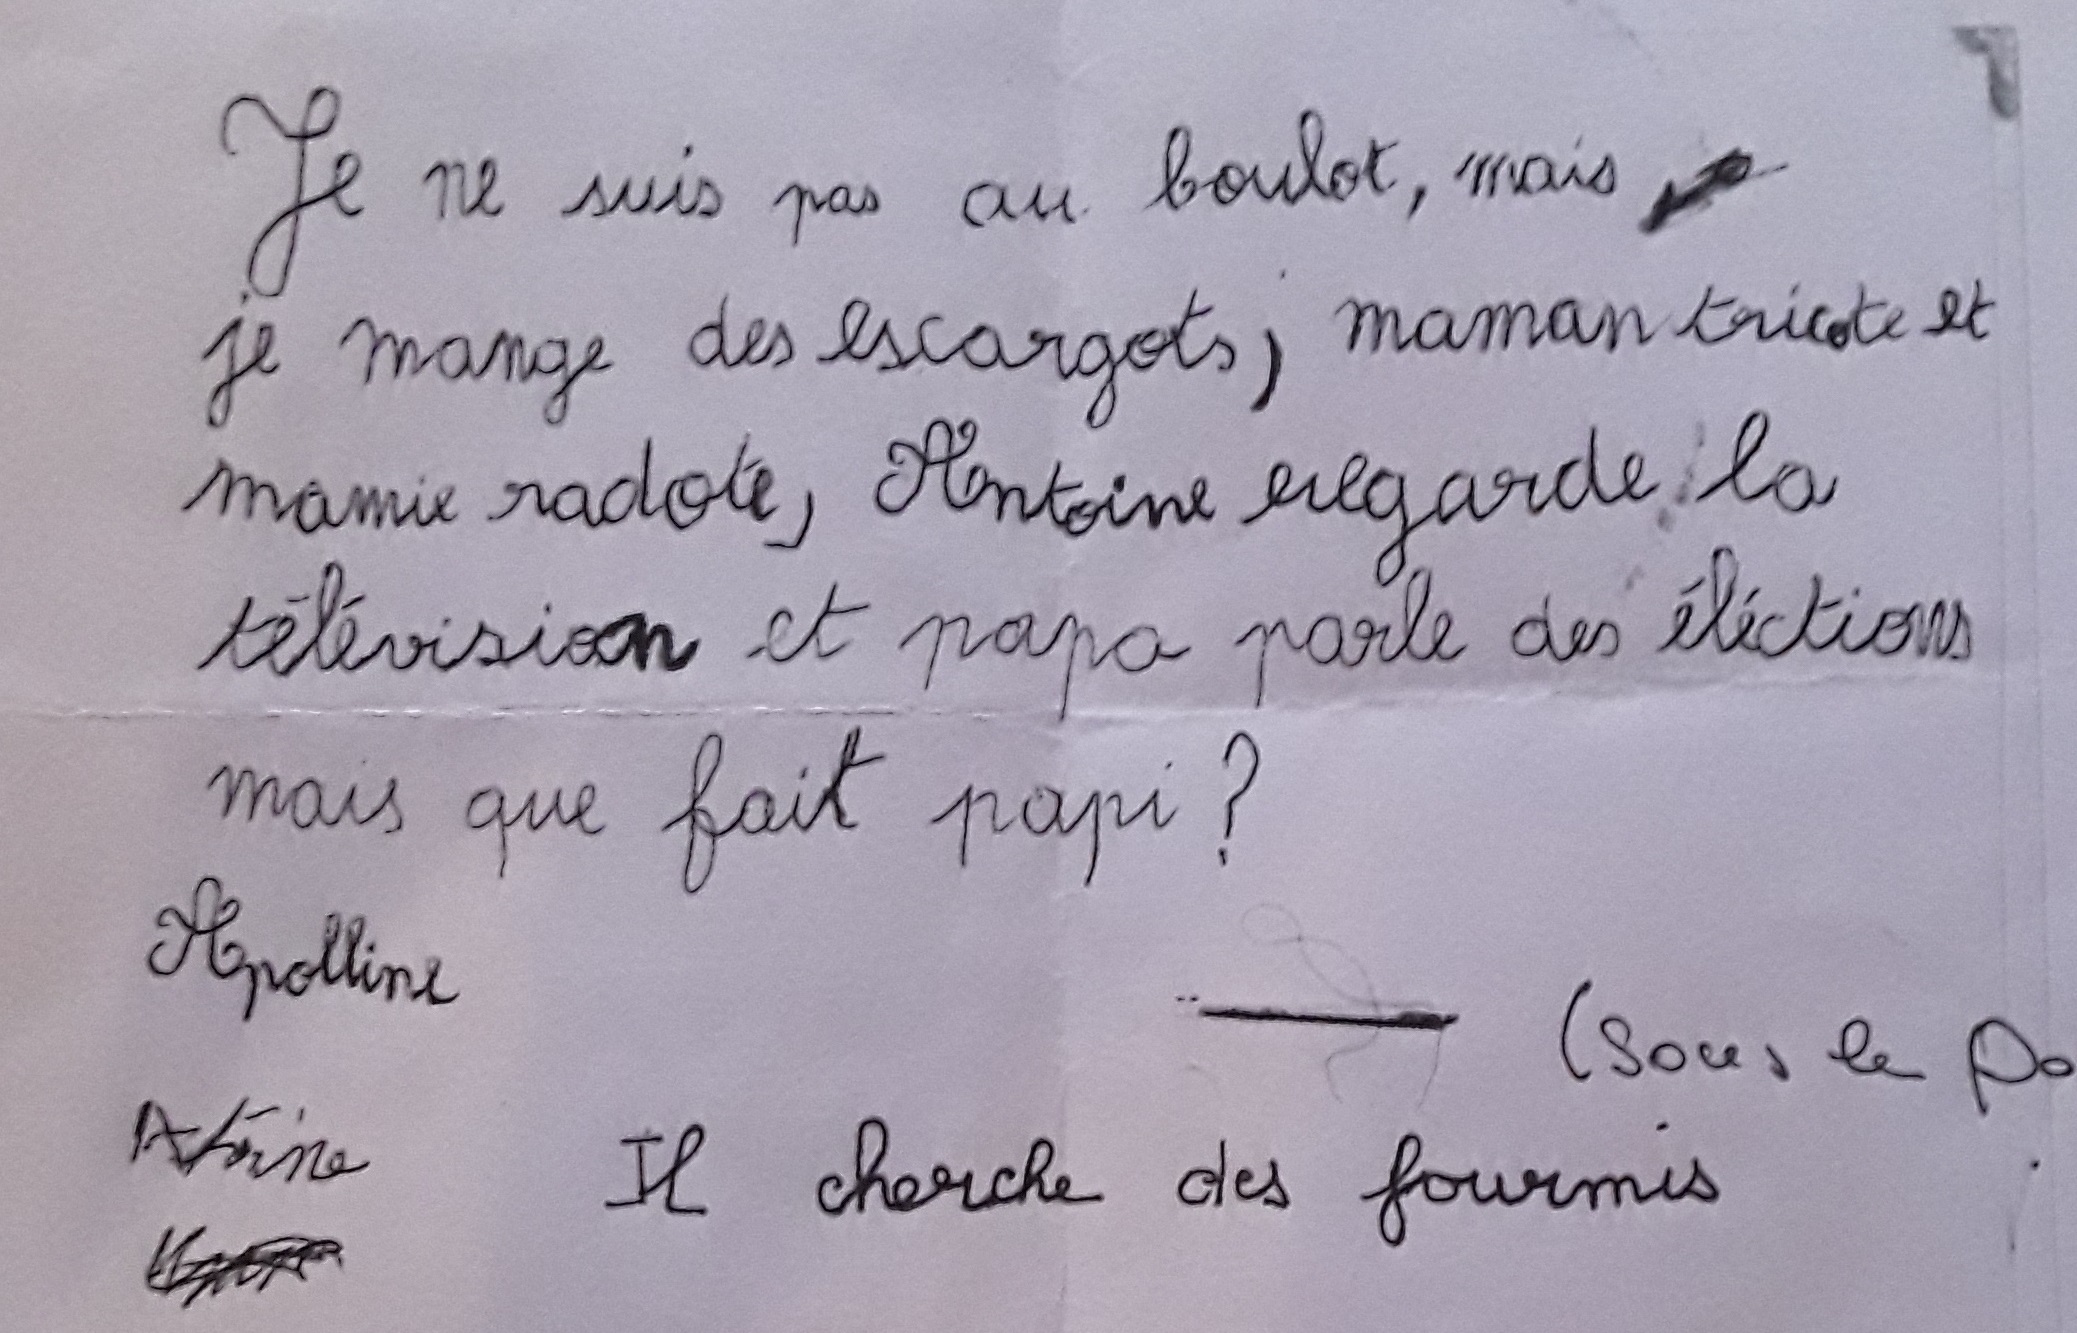 Je ne suis pas au boulot, mais
je mange des escargots, maman tricote et
mamie radote, Antoine regarde la
télévision et papa parle des éléctions
mais que fait papi ?
Apolline
(sous le po
Atoine
Il cherche des fourmis